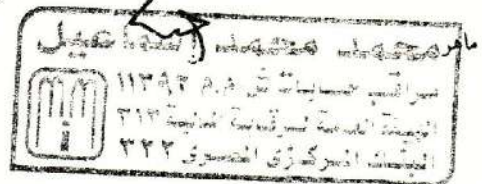 ماهر محمد محمد إسماعيل
مراقب حسابات ١١٣٩٢
الهيئة العامة للرقابة المالية ٣١٣
البنك المركزى المصرى ٣٢٢